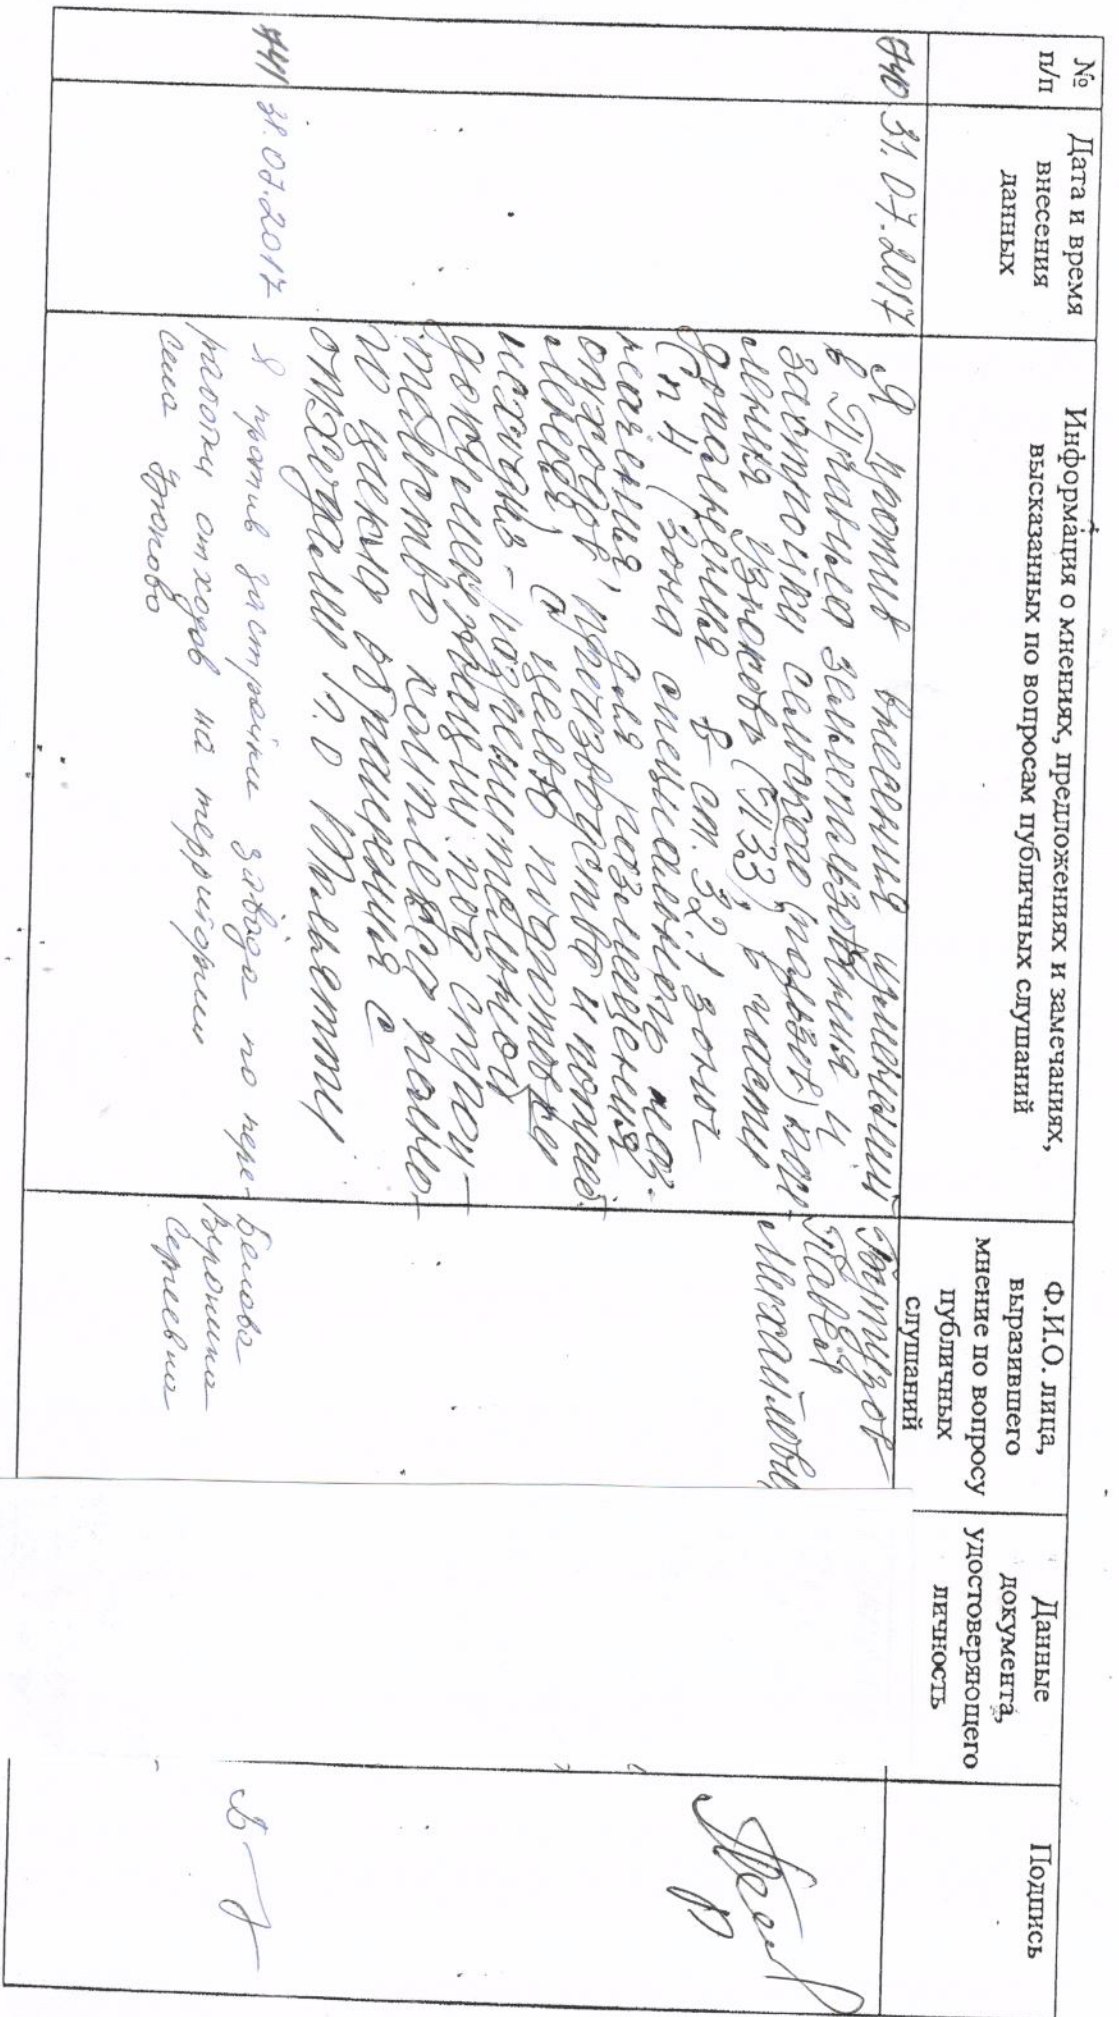 №
п/п
Дата и время
внесения
данных
Информация о мнениях, предложениях и замечаниях,
высказанных по вопросам публичных слушаний
Ф.И.О. лица,
выразившего
мнение по вопросу
публичных
слушаний
Данные
документа,
удостоверяющего
личность
Подпись
31.07.2017
Я против внесения изменений
в Правила землепользования и
застройки сельского
в части
дополнения ст. 32.1 зоной
Сп 4 (зона специального наз-
начения, для размещения
отходов производства и потреб
ления) с целью подготовки
исходно-разрешительной
документации под строи-
тельство комплекса полно-
го цикла обращения с
отходами г.о Тольятти
Павел
Михайлович
441
31.07.2017
я против застройки завода по пере-
работки отходов на территории
села
Белова
Сергеевна